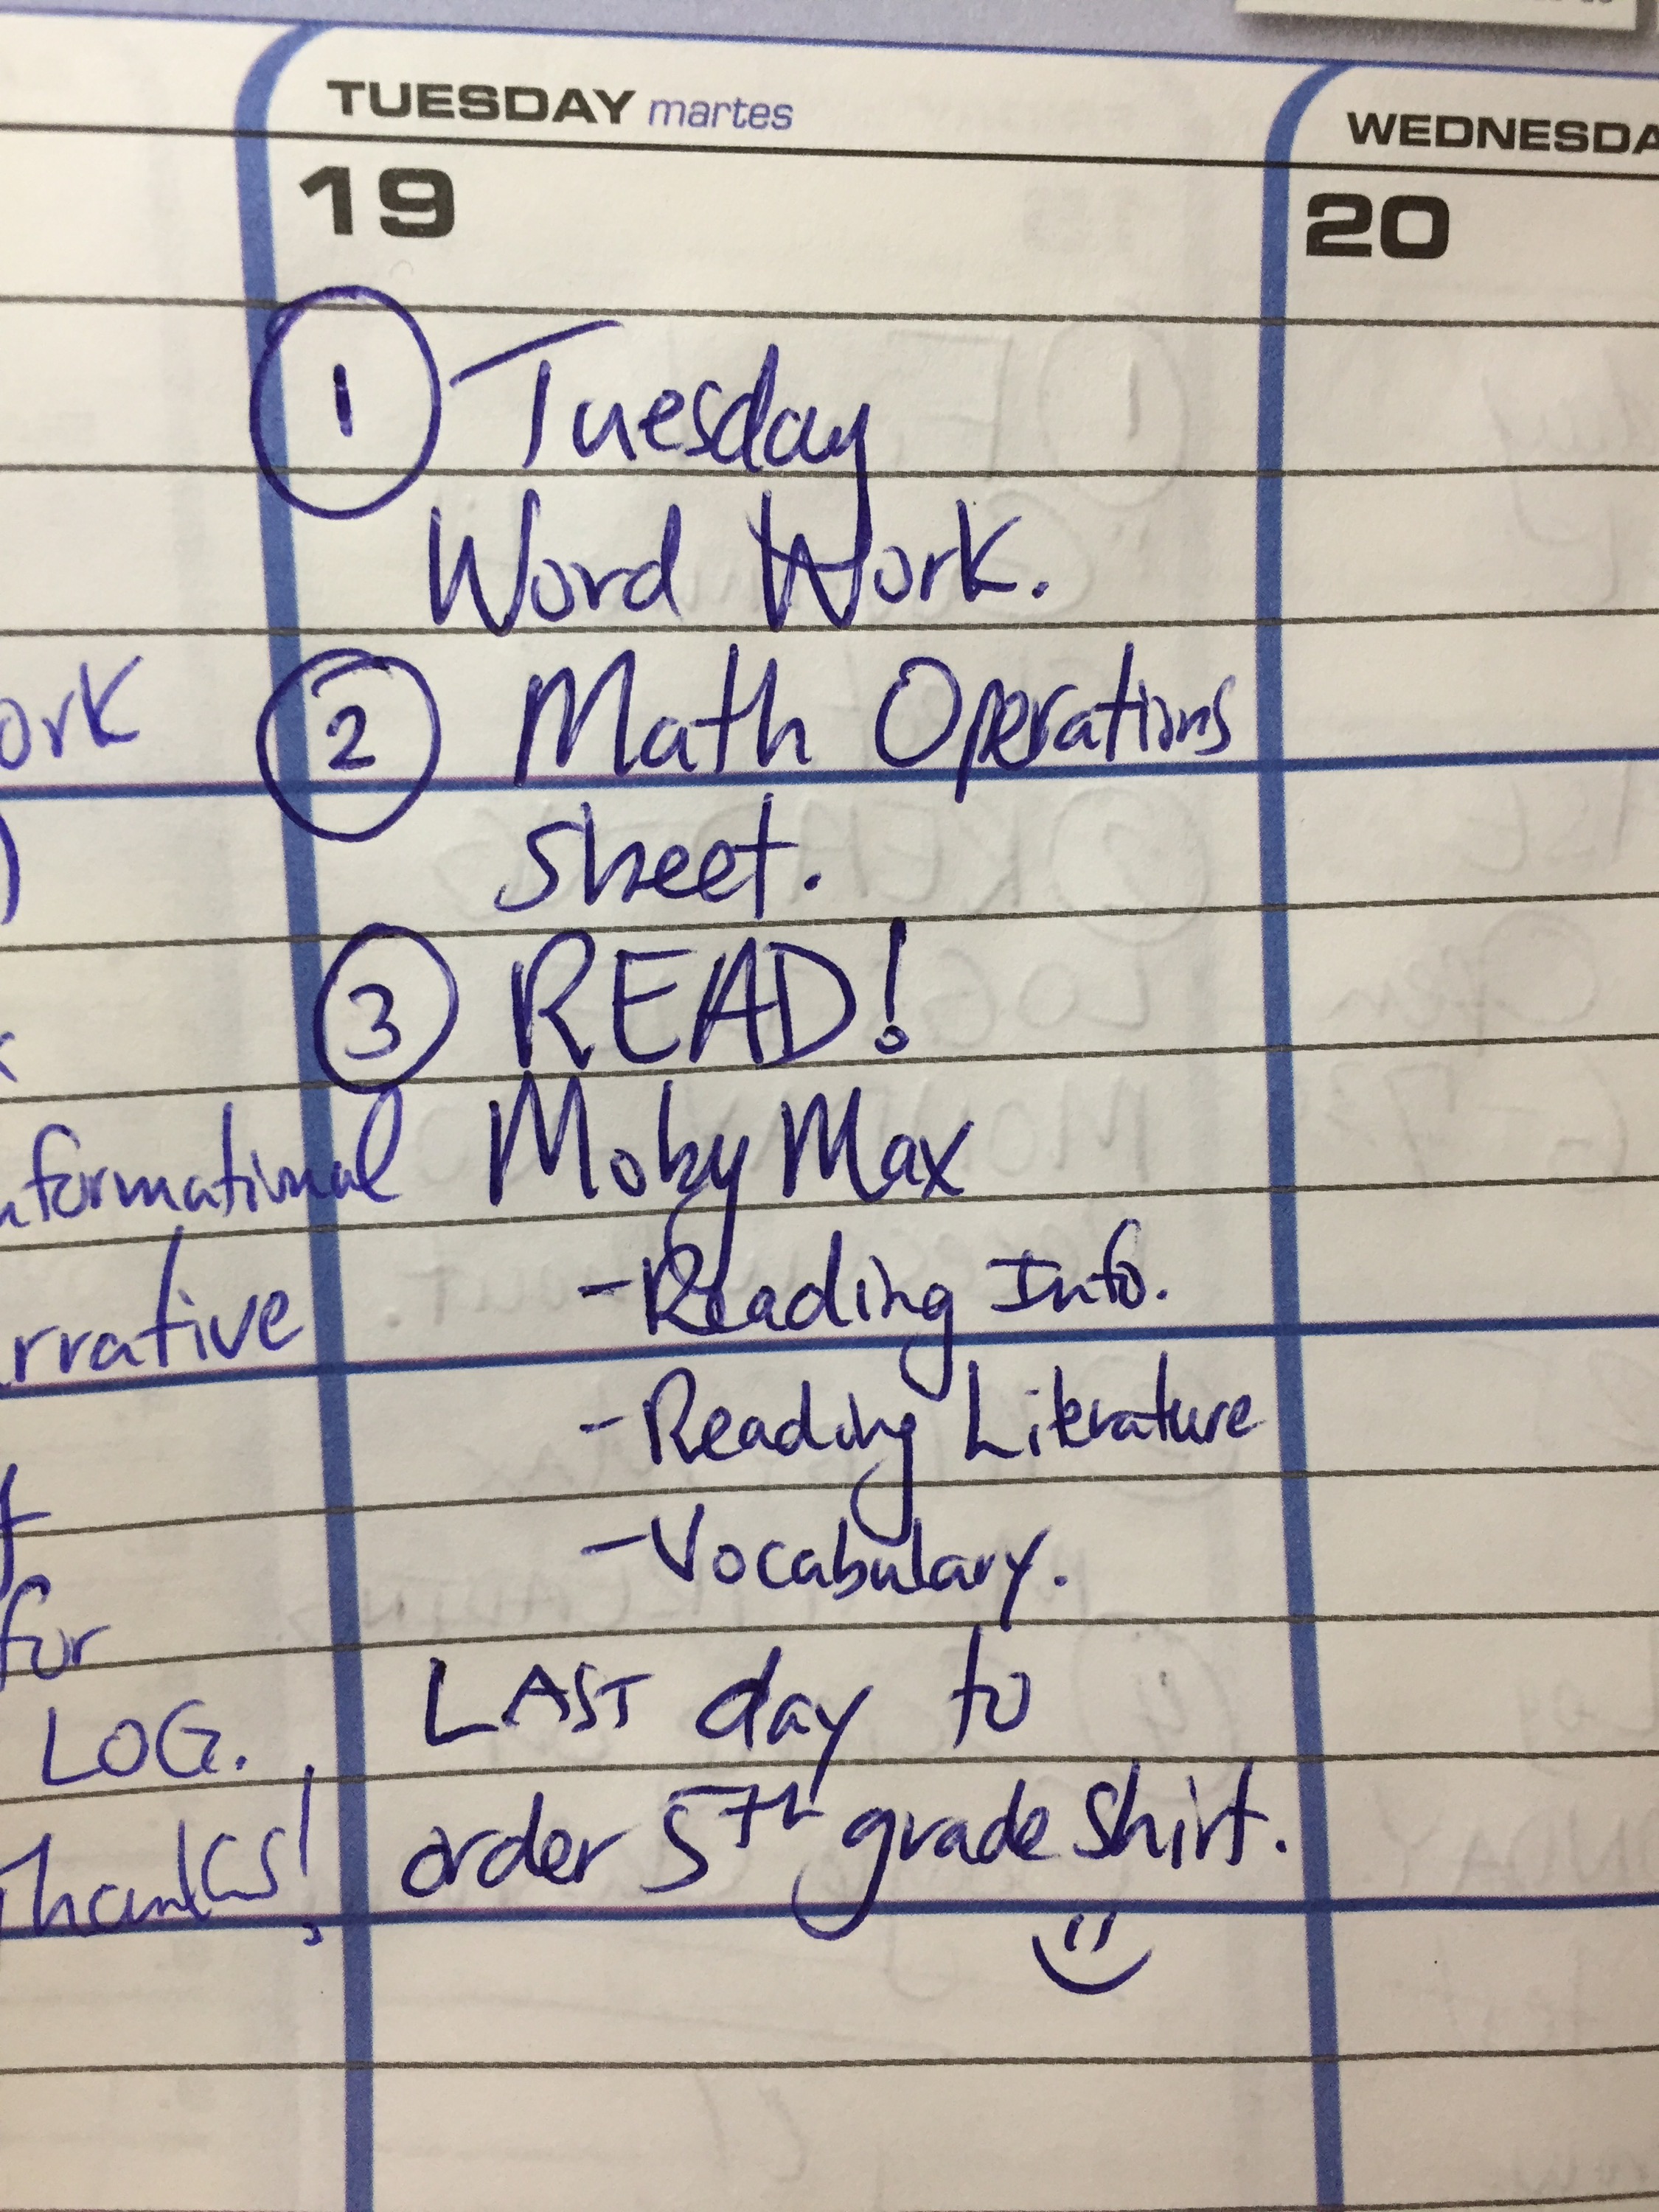 TUESDAY martes
WEDNESDA
19
20
① Tuesday
Word Work.
② Math Operations
sheet.
③ READ!
Moby Max
-Reading Info.
-Reading Literature
-Vocabulary.
LAST day to
order 5th grade shirt.
ork
nformational
rrative
for
LOG.
Thanks!